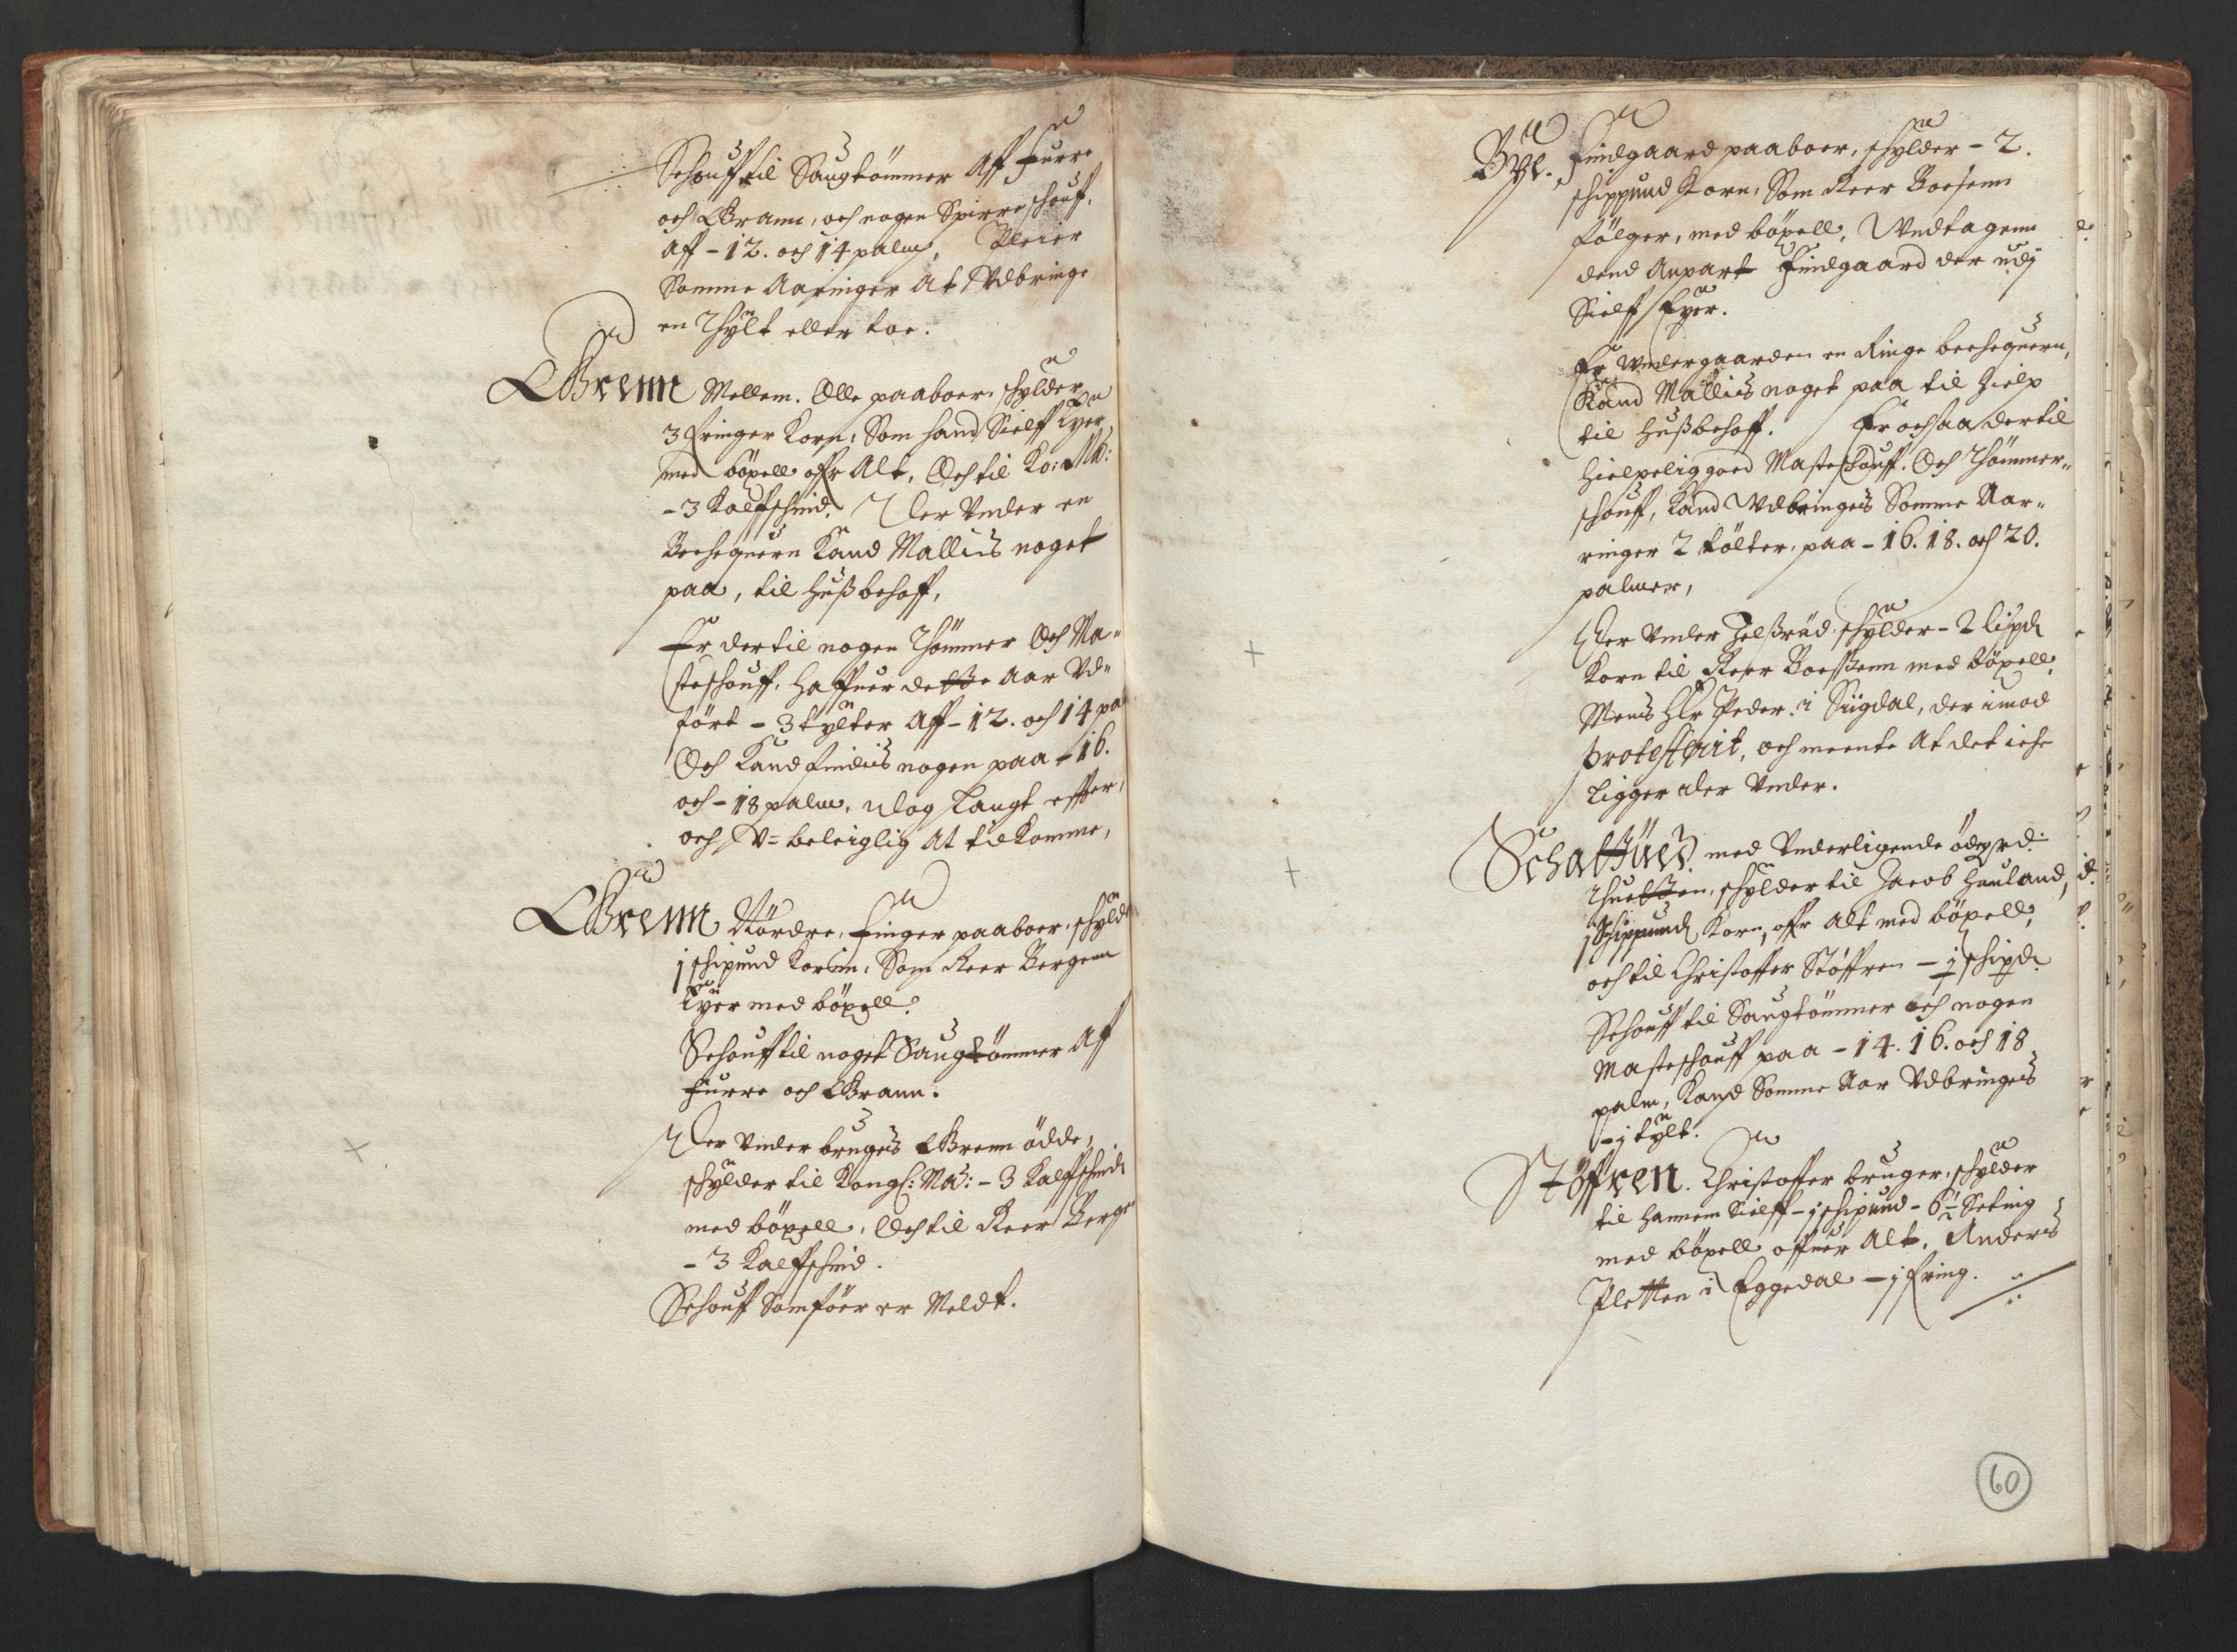 Schouff til Saugtömmer Aff Furre
och Grann, och nogen Spirreschouf,
Aff - 12. och 14 palm, Pleier
Somme Aaringer At Vdbringe
en Thylt eller toe.
Grenn Mellem. Olle paaboer, schylder
3 Fringer Korn, Som hand Sielff Eyer
med böxell offr Alt, Och til Ko: Ma:
- 3 Kalffschind. Der Vnder en
Bechequern Kand Mallis noget
paa, til Hußbehoff,
Er der til nogen Thömmer Och Ma-
steschouff, Haffuer dette Aar Vd-
fört - 3 tylter Aff - 12. och 14 pa
Och Kand findis nogen paa - 16.
och - 18 palm, dog langt effter,
och V-beleiglig At tilKomme,
Grenn Nördre, Finger paaboer, schyld
j schipund Korn, Som Peer Bergenn
Eyer med böxell.
Schouff til noget Saugtömmer Aff
Furre och Grann.
Der Vnder brugis Grenn ödde,
schylder til Kongl: Ma: - 3 Kalffschind
med böxell, Och til Peer Berge
- 3 Kalffschind.
Schouff Som för er Meldt.
Bye. Findgaard paaboer, schylder - 2.
schippund Korn, Som Peer Boesenn
fölger, med böxell, Vndtagenn
dend Anpart Findgaard der udj
Sielff Eyer.
Er Vnder gaarden en Ringe bechequern,
Kand Mallis noget paa til Hielp
til Hußbehoff. Er ochsaa der til
Hielpelig goed Masteschouff. Och Thömmer-
schouff, Kand Vdbringis Somme Aar-
ringer 2 tölter, paa - 16. 18. och 20.
palmer,
Der Vnder Helßrud, schylder - 2 lispd
Korn til Peer Boeßenn med böxell,
Mens Hr Peder i Siigdal, der imod
protesterit, och meente At det iche
ligger der Vnder.
Schattüed med Vnderligende ödegrd:
Thuetten, schylder til Jacob Hauland,
j Schippund Korn, offr Alt med böxell,
och til Christoffer Stöffren - j schipd.
Schouff til Saugtömmer och nogen
Masteschouff paa - 14. 16. och 18
palm, Kand Somme Aar Vdbringis
- j tylt.
Stöffren. Christoffer bruger, schylder
til Hannem Sielff - j schipund - 6 1/2 Seting
med böxell offuer Alt, Anders
Pletten i Eggedal - j Fring.
60